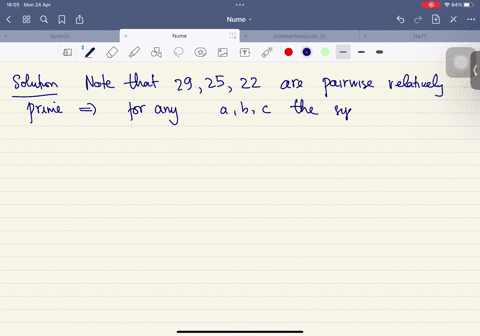 16:05 Mon 24 Apr
84%
Nume
Scratch Nume Untitled Notebook (1)
Solution Note that 29, 25, 22 are pairwise relatively
prime ⇒ for any a, b, c the sy